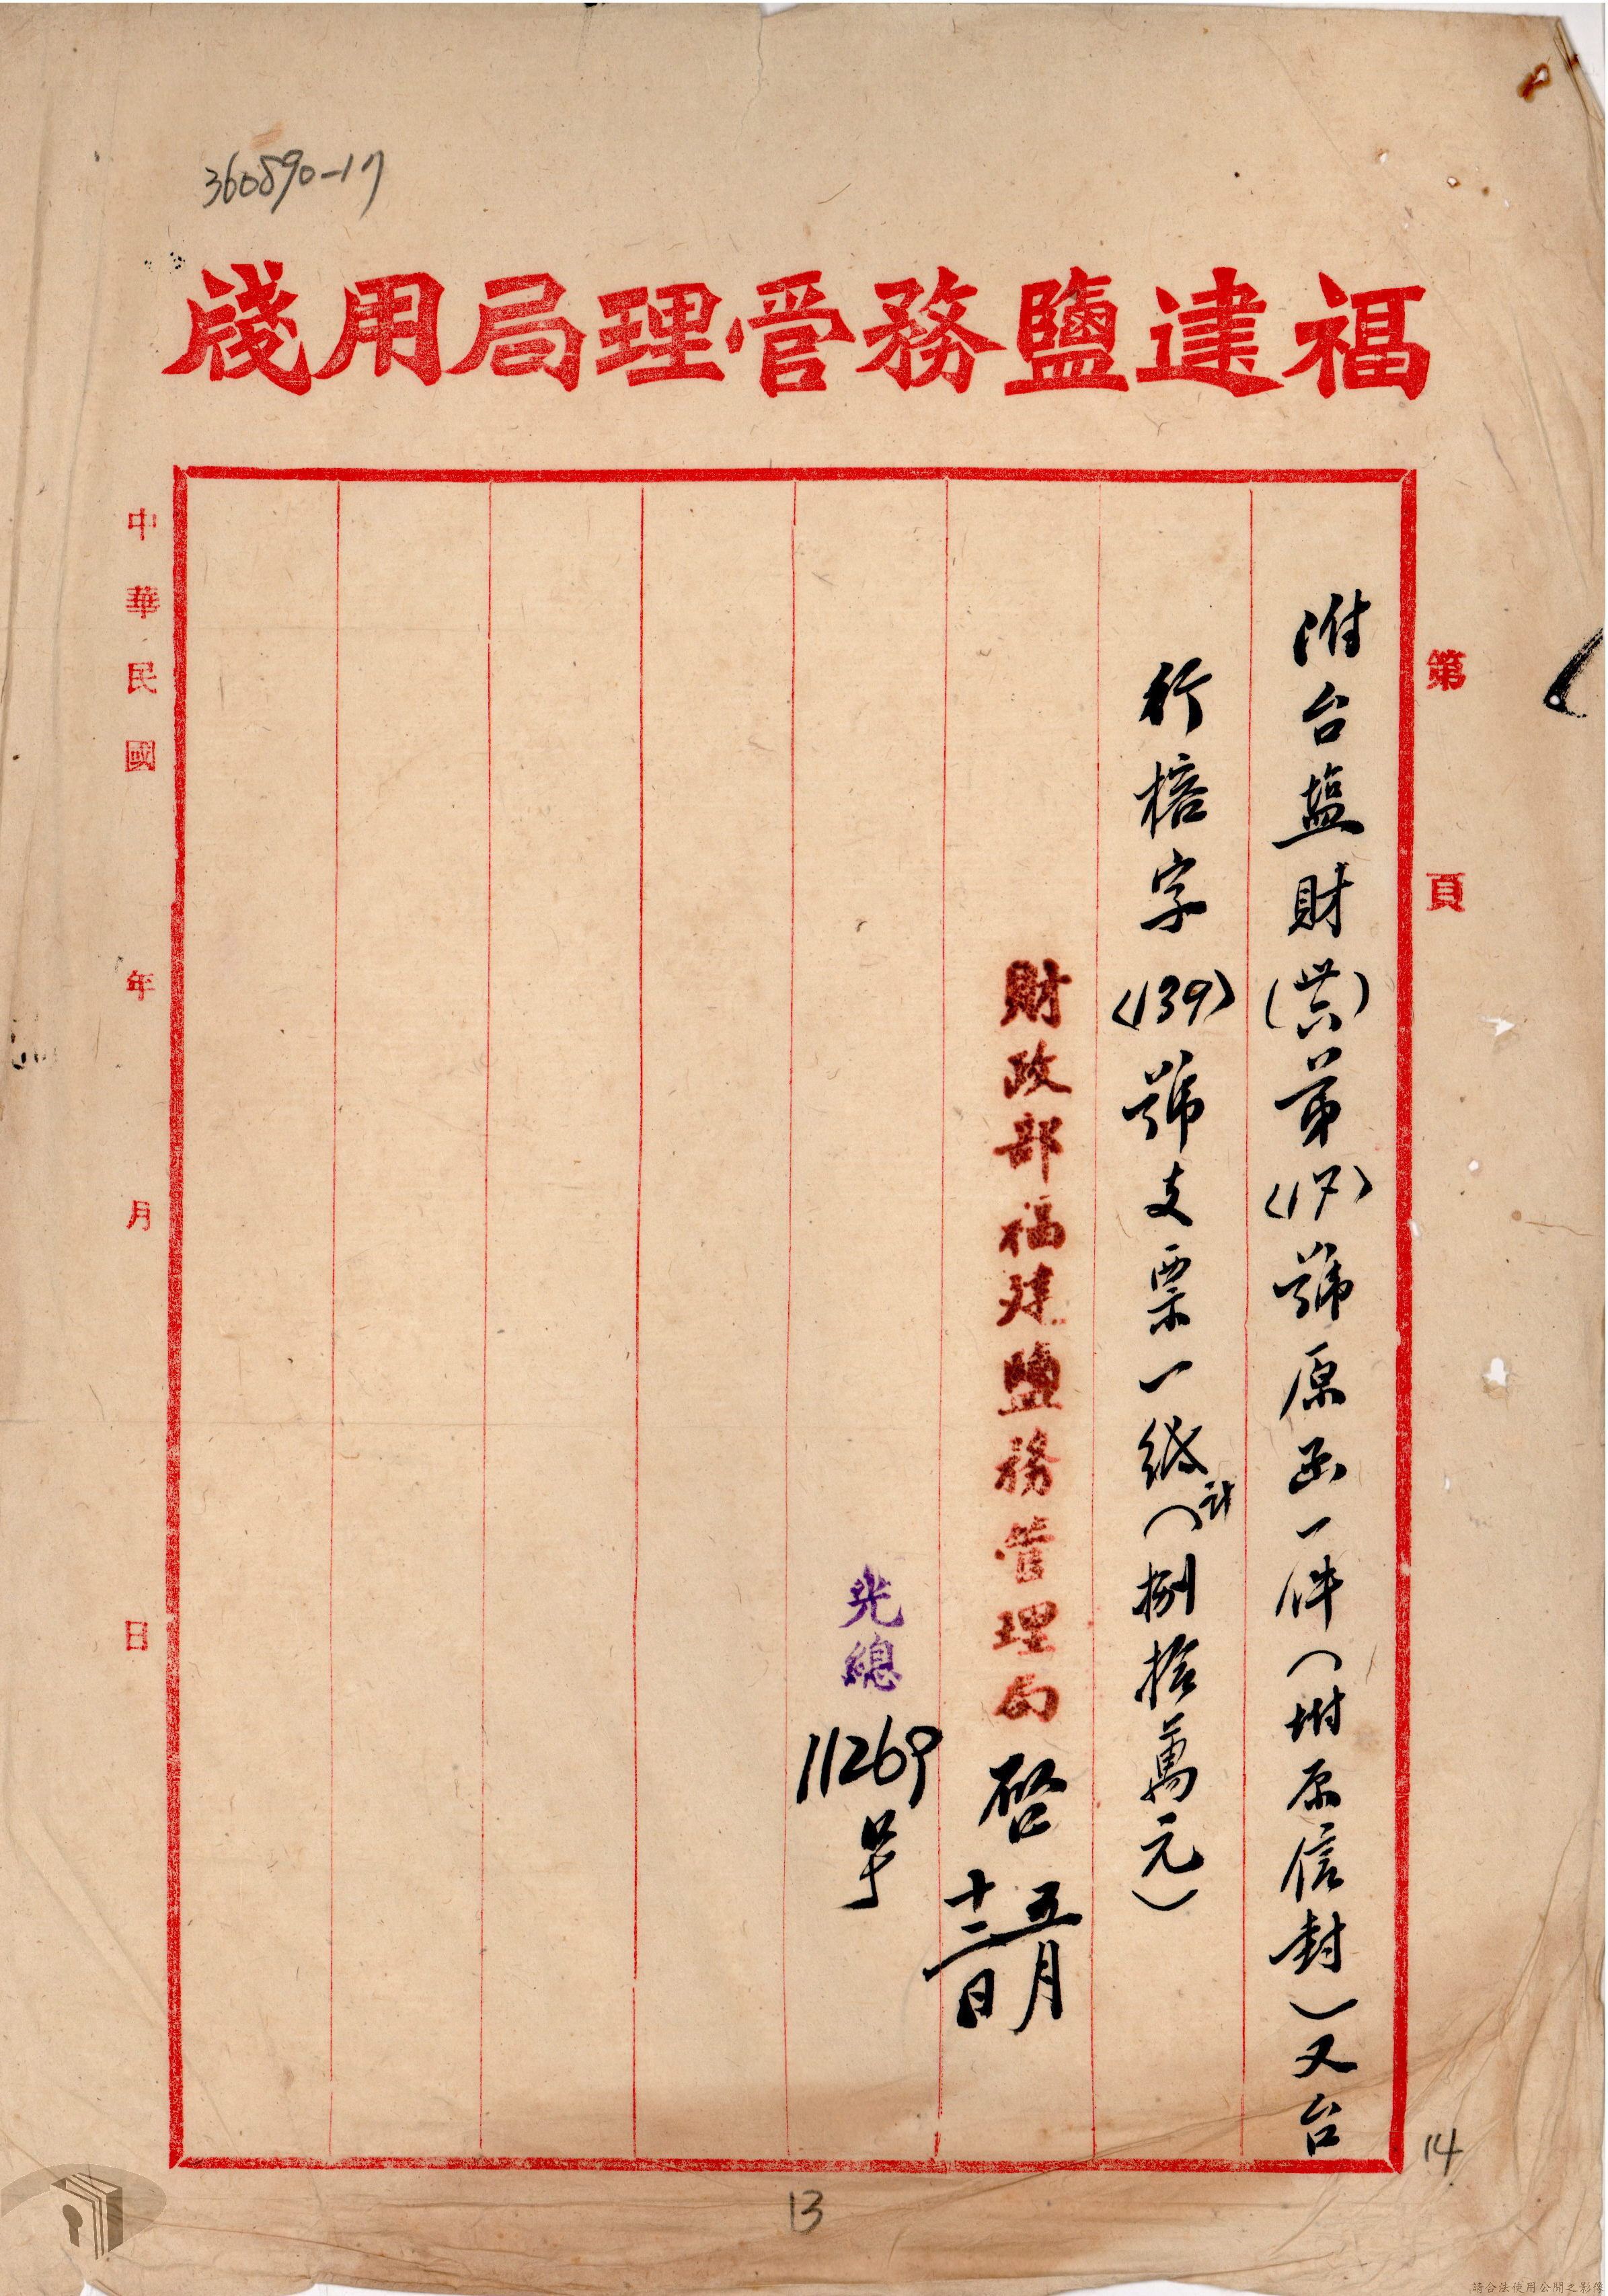 360890-17
福建鹽務管理局用箋
第 頁
附台盐財(卅六)第〈17〉號原函一件(附原信封)又台
行榕字〈139〉號支票一紙(計捌拾萬元)
財政部福建鹽務管理局啓 五月十二日
光總11269号
中華民國 年 月 日
14
13
請合法使用公開之影像